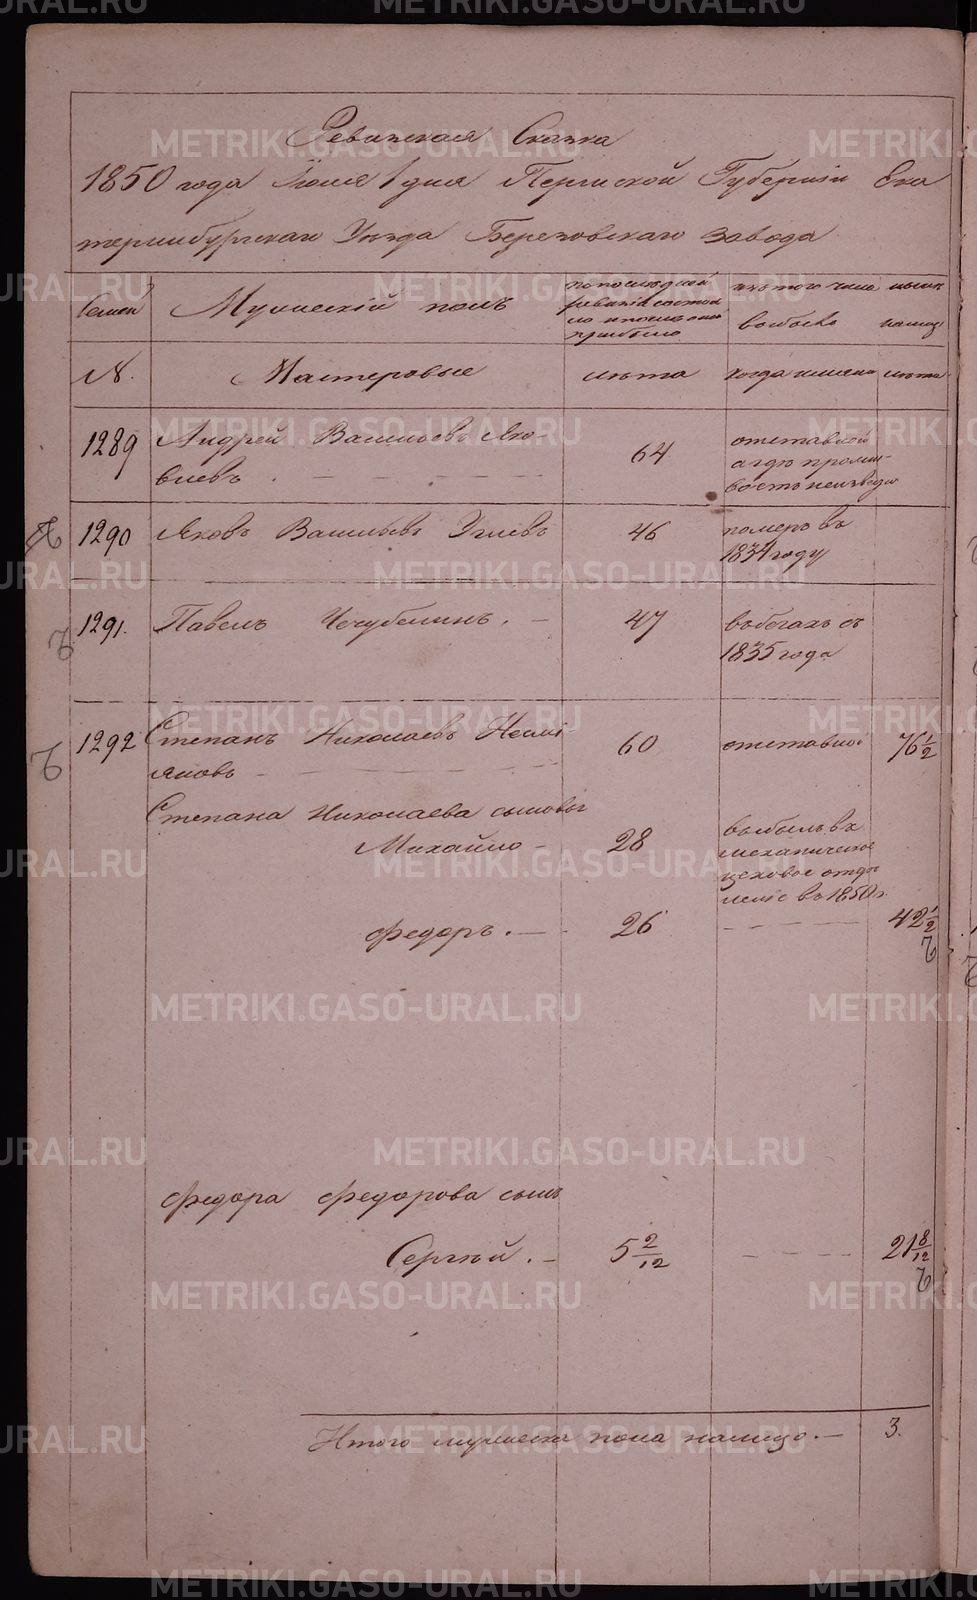 Ревизская Сказка
1850 года Июля 1 дня Пермской Губернии Ека
теринбургскаго Уезда Березовскаго Завода
Семей Мужескій полъ по последней ревизіи состояло и после оной прибыло изъ того числа выбыло ныне налицо
№. Мастеровые лѣта когда именно лѣта
1289 Андрей Васильевъ Яко-
влевъ. 64 отставной
а где прожи-
вастъ неизвѣстно
1290 Яковъ Васильевъ 46 померъ въ
1834 году
1291. Павелъ 47 въ бегахъ съ
1835 года
1292 Степанъ Николаевъ
60 отставной 76 1/2
Степана Николаева сыновья
Михайло 28 выбылъ въ
механическое
цеховое отдѣ
леніе въ 1850 г.
Федоръ. 26 42 1/2
Федора Федорова сынъ
Сергѣй. 5 2/12 21 8/12
Итого мужеска пола налицо. 3.
METRIKI.GASO-URAL.RU